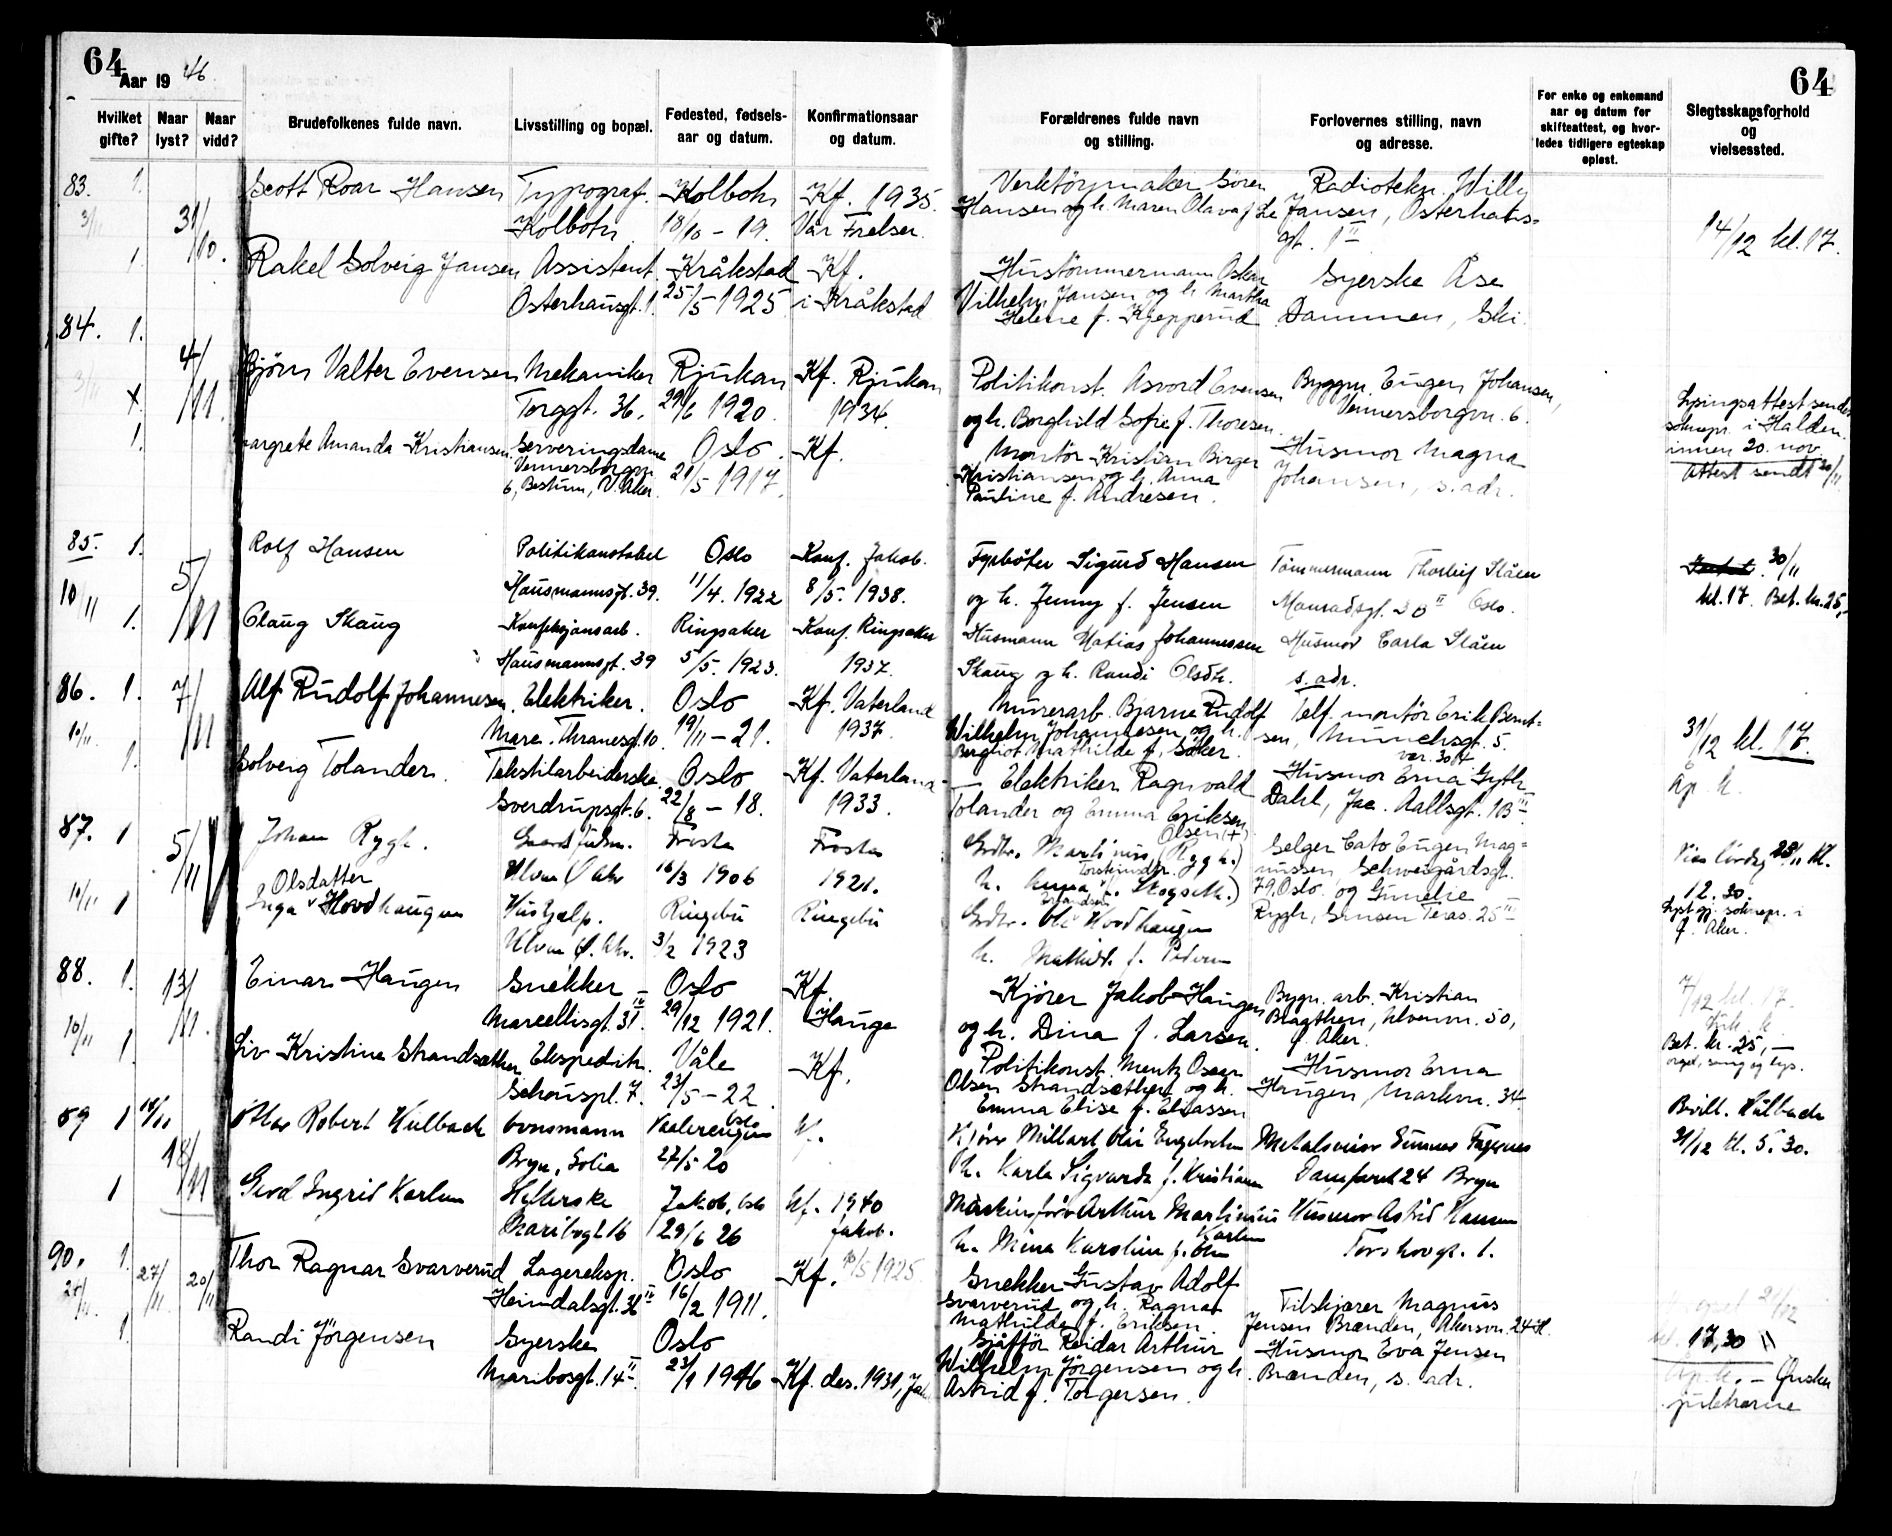 64
Aar 19 46.
64
Hvilket gifte?
Naar lyst?
Naar vidd?
Brudefolkenes fulde navn.
Livsstilling og bopæl.
Fødested, fødsels-
aar og datum.
Konfirmationsaar
og datum.
Forældrenes fulde navn
og stilling.
Forlovernes stilling, navn
og adresse.
For enke og enkemand
aar og datum for
skifteattest, og hvor-
ledes tidligere egteskap
opløst.
Slegtsskapsforhold
og
vielsessted.
83. 1. Scott Roar Hansen Typograf. Kolbotn Kf. 1935. Verktöymaker Sören Radiotekn. Willy
3/11 31/10. Kolbotn 18/10 - 19. Vår Frelser. Hansen og h. Maren Olava f. Jansen, Osterhaus-
gt. 1 II 14/12 kl. 17.
1. Rakel Solveig Jansen Assistent Kråkstad Kf. Hustömmermann Oskar Syerske Åse
Osterhausgt. 1. 25/5 1925 i Kråkstad Vilhelm Jansen og h. Martha Dammen, Ski.
Helene f. Kjepperud
84. 1. 4/11 Bjørn Valter Evensen Mekaniker Rjukan Kf. Rjukan Politikonst. Asvord Evensen Byggm. Eugen Johansen,
3/11 x. Torggt. 36. 29/6 1920. 1934. og h. Borghild Sofie f. Thoresen. Vennersborgvn. 6. Lysingsattest sendes
soknepr. i Halden
innen 20. nov.
Attest sendt 20/11
1. Margrete Amanda Kristiansen Serveringsdame Oslo. Kf. Montör Kristian Birger Husmor Magna
Vennersborgvn. 21/5 1917. Kristiansen og h. Anna Johansen, s. adr.
6, Bestum, V. Aker. Pauline f. Andresen.
85. 1. Rolf Hansen Politikonstabel Oslo Konf. Jakob. Fyrböter Sigurd Hansen Tömmermann Thorleif Slåen 30/11
10/11 5/11 Hausmannsgt. 39. 11/4. 1922 8/5. 1938. og h. Jenny f. Jensen Maridalsgt. II Oslo. kl. 17. Bet. kr. 25,-
1. Olaug Skaug Konfeksjonsarb. Ringsaker Konf. Ringsaker Husmann Matias Johannessen Husmor Carla Slåen
Hausmannsgt. 39 5/5. 1923. 1937. Skaug og h. Randi Olsdtr. s. adr.
86. 1. 7/11 Alf Rudolf Johannesen. Elektriker. Oslo Kf. Vaterland Murerarb. Bjarne Rudolf Telf. montör Erik Bernt-
10/11. Marc. Thranesgt. 10. 19/11 - 21. 1937. Wilhelm Johannesen og h. sen, Munchsgt. 5. 31/12 kl. 17.
Bergliot Mathilde f. Söker. vær. 304
1. Solveig Tolander. Tekstilarbeiderske Oslo Kf. Vaterland - Elektriker Ragnvald Husmor Erna Gyth
Sverdrupsgt. 6. 22/8 - 18. 1933. Tolander og Emma Eriksen Dahl, Jac. Aallsgt. 1B III
87. 1 5/11 Johan Rygh. Frosta Frosta Grdbr. Martinius (Rygh.) Selger Cato Eugen Mag-
Ulven Ø. Akr 16/3 1906 1921. h. Anna f. Skogseth.) nussen Schweigårdsgt. Vies lørdag 23/11 kl.
12.30.
Olsdatter 79, Oslo. og Gunelie
10/11 1 Inga Hovdhaugen Hushjelp. Ringebu Ringebu Grdbr. Ole Hovdhaugen Rygh, Jensen Teras. 25 III
Ulven Ø. Akr. 3/2 1923 h. Mathild. f. Pedersen
Lyst gj. soknepr. i
Ø. Aker.
88. 1. 13/11. Einar Haugen Snekker Oslo Kf. Kjörer Jakob Haugen Bygn. arb. Kristian 7/12 kl. 17.
10/11 Marcellisgt. 31 IV. 29/12 1921. Hauge og h. Dina f. Larsen. Bragthen, Ulvenvn. 50,
Ø. Aker.
1. Liv Kristine Strandsæther Ekspeditr. Våle Kf. Politikonst. Mentz Oscar Husmor Erna Bet. kr. 25,-
Schouspl. 7. 23/5 - 22. Olsen Strandsæther og h. Haugen, Markvn. 34. orgel, sang og lys.
Emma Elise f. Eliassen
89 1 14/11 Ottar Robert Hulback Vaalerengen Oslo Kf. Metalsliper Gunnar Bvill. Hulback
18/11 Bryn, Solia 27/5 20 h. Karla Sigvarda f. Kristiansen Damfaret 24 Bryn 31/12 kl. 5.30.
1 Gerd Ingrid Karlsen Jakob, Oslo Kf. 1940 Maskinförer Arthur Martinius Husmor Astrid Hansen
Maribogt. 16 29/6 26 Jakob. Karlsen h. Mina Karoline f. Torshovgt. 1.
90. 1. 27/11 20/11 Thor Ragnar Svarverud Lagereksp. Oslo Kf. 10/5 1925. Snekker Gustav Adolf
Heimdalsgt. 36 II 16/2 1911. Svarverud og h. Ragna Filskjærer Magnus
Mathilde f. Eriksen. Jensen Brænden, Akersvn. 24
1. Randi Jörgensen Syerske Oslo Sjåför Reidar Arthur Husmor Eva Jensen 17,30
Maribosgt. 14 II. 23/1 1916 Kf. des. 1931, Jak Wilhelm Jörgensen og h. Brænden, s. adr.
Astrid f. Torgersen. Ønsker
juletrærne